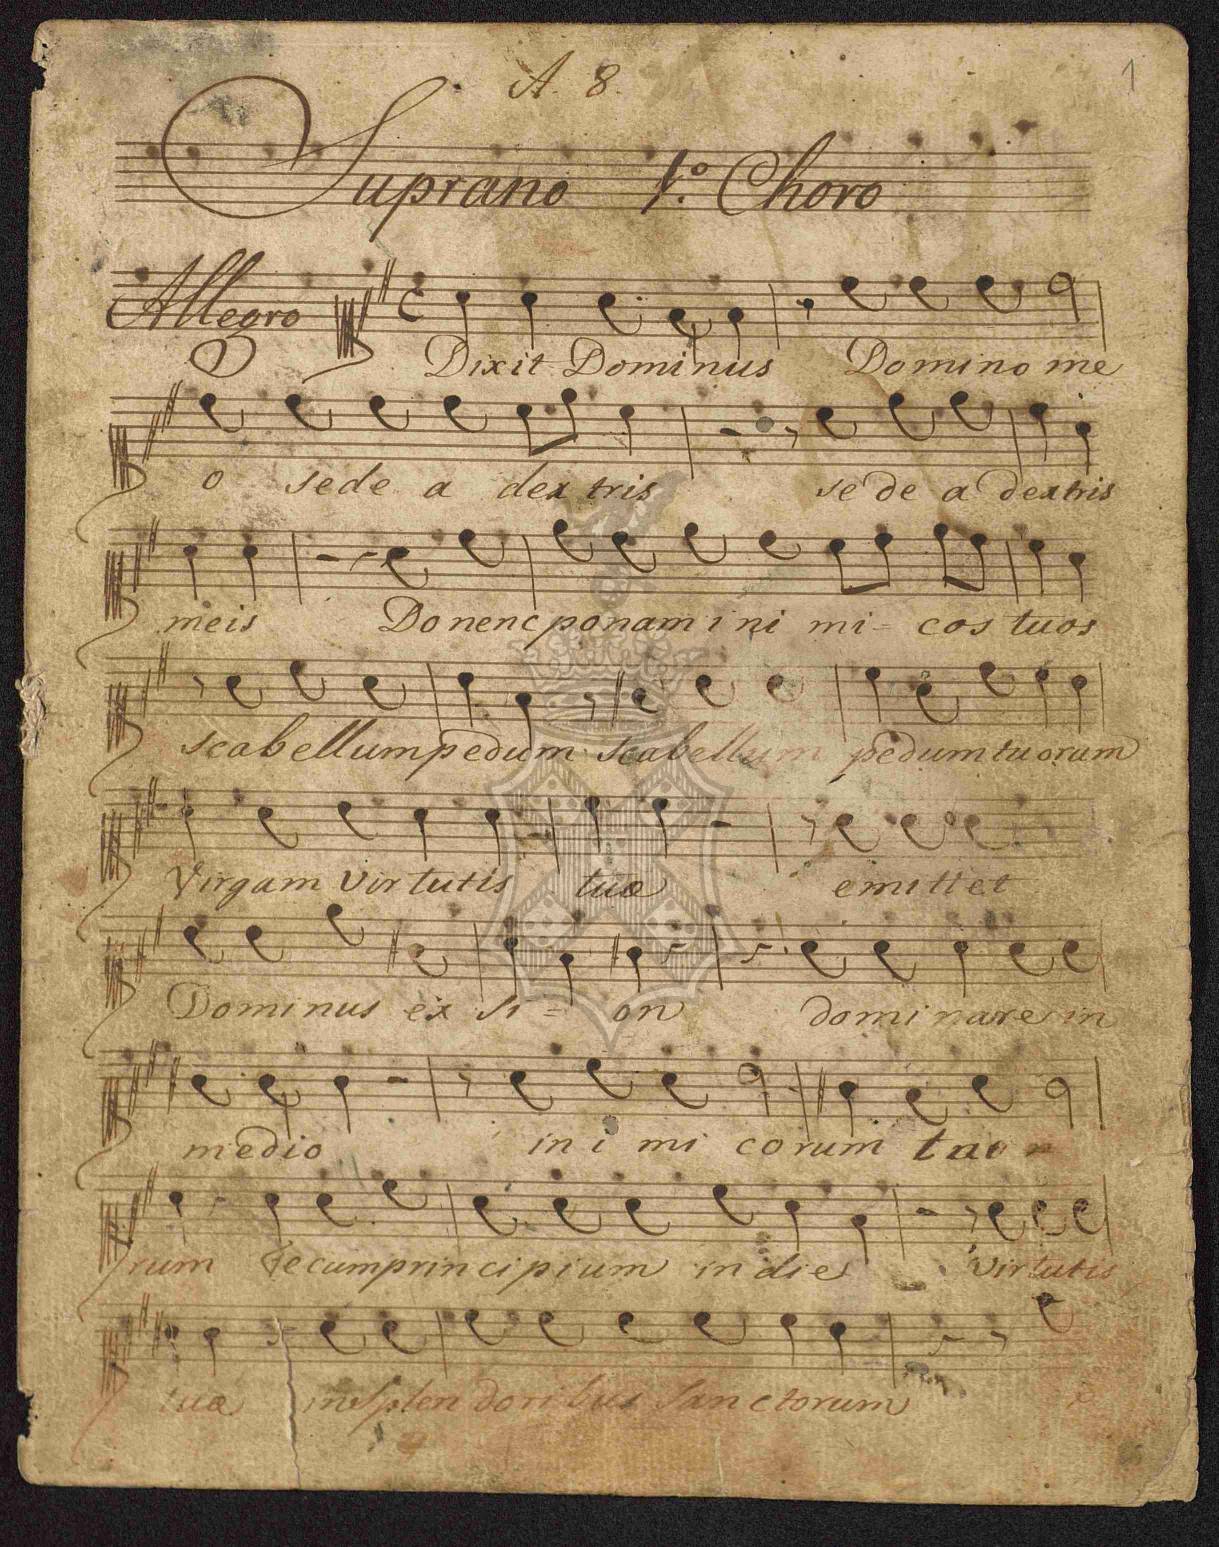 A. 8.
1
Suprano 1.º Choro
Allegro
Dixit Dominus Domino me
o sede a dextris sede a dextris
meis Donec ponam ini mi= cos tuos
scabellum pedum scabellum pedum tuorum
Virgam Virtutis tuæ emittet
Dominus ex si= on dominare in
medio ini mi corum tuo
rum Tecum principium in die Virtutis
tuæ in Splen doribus Sanctorum